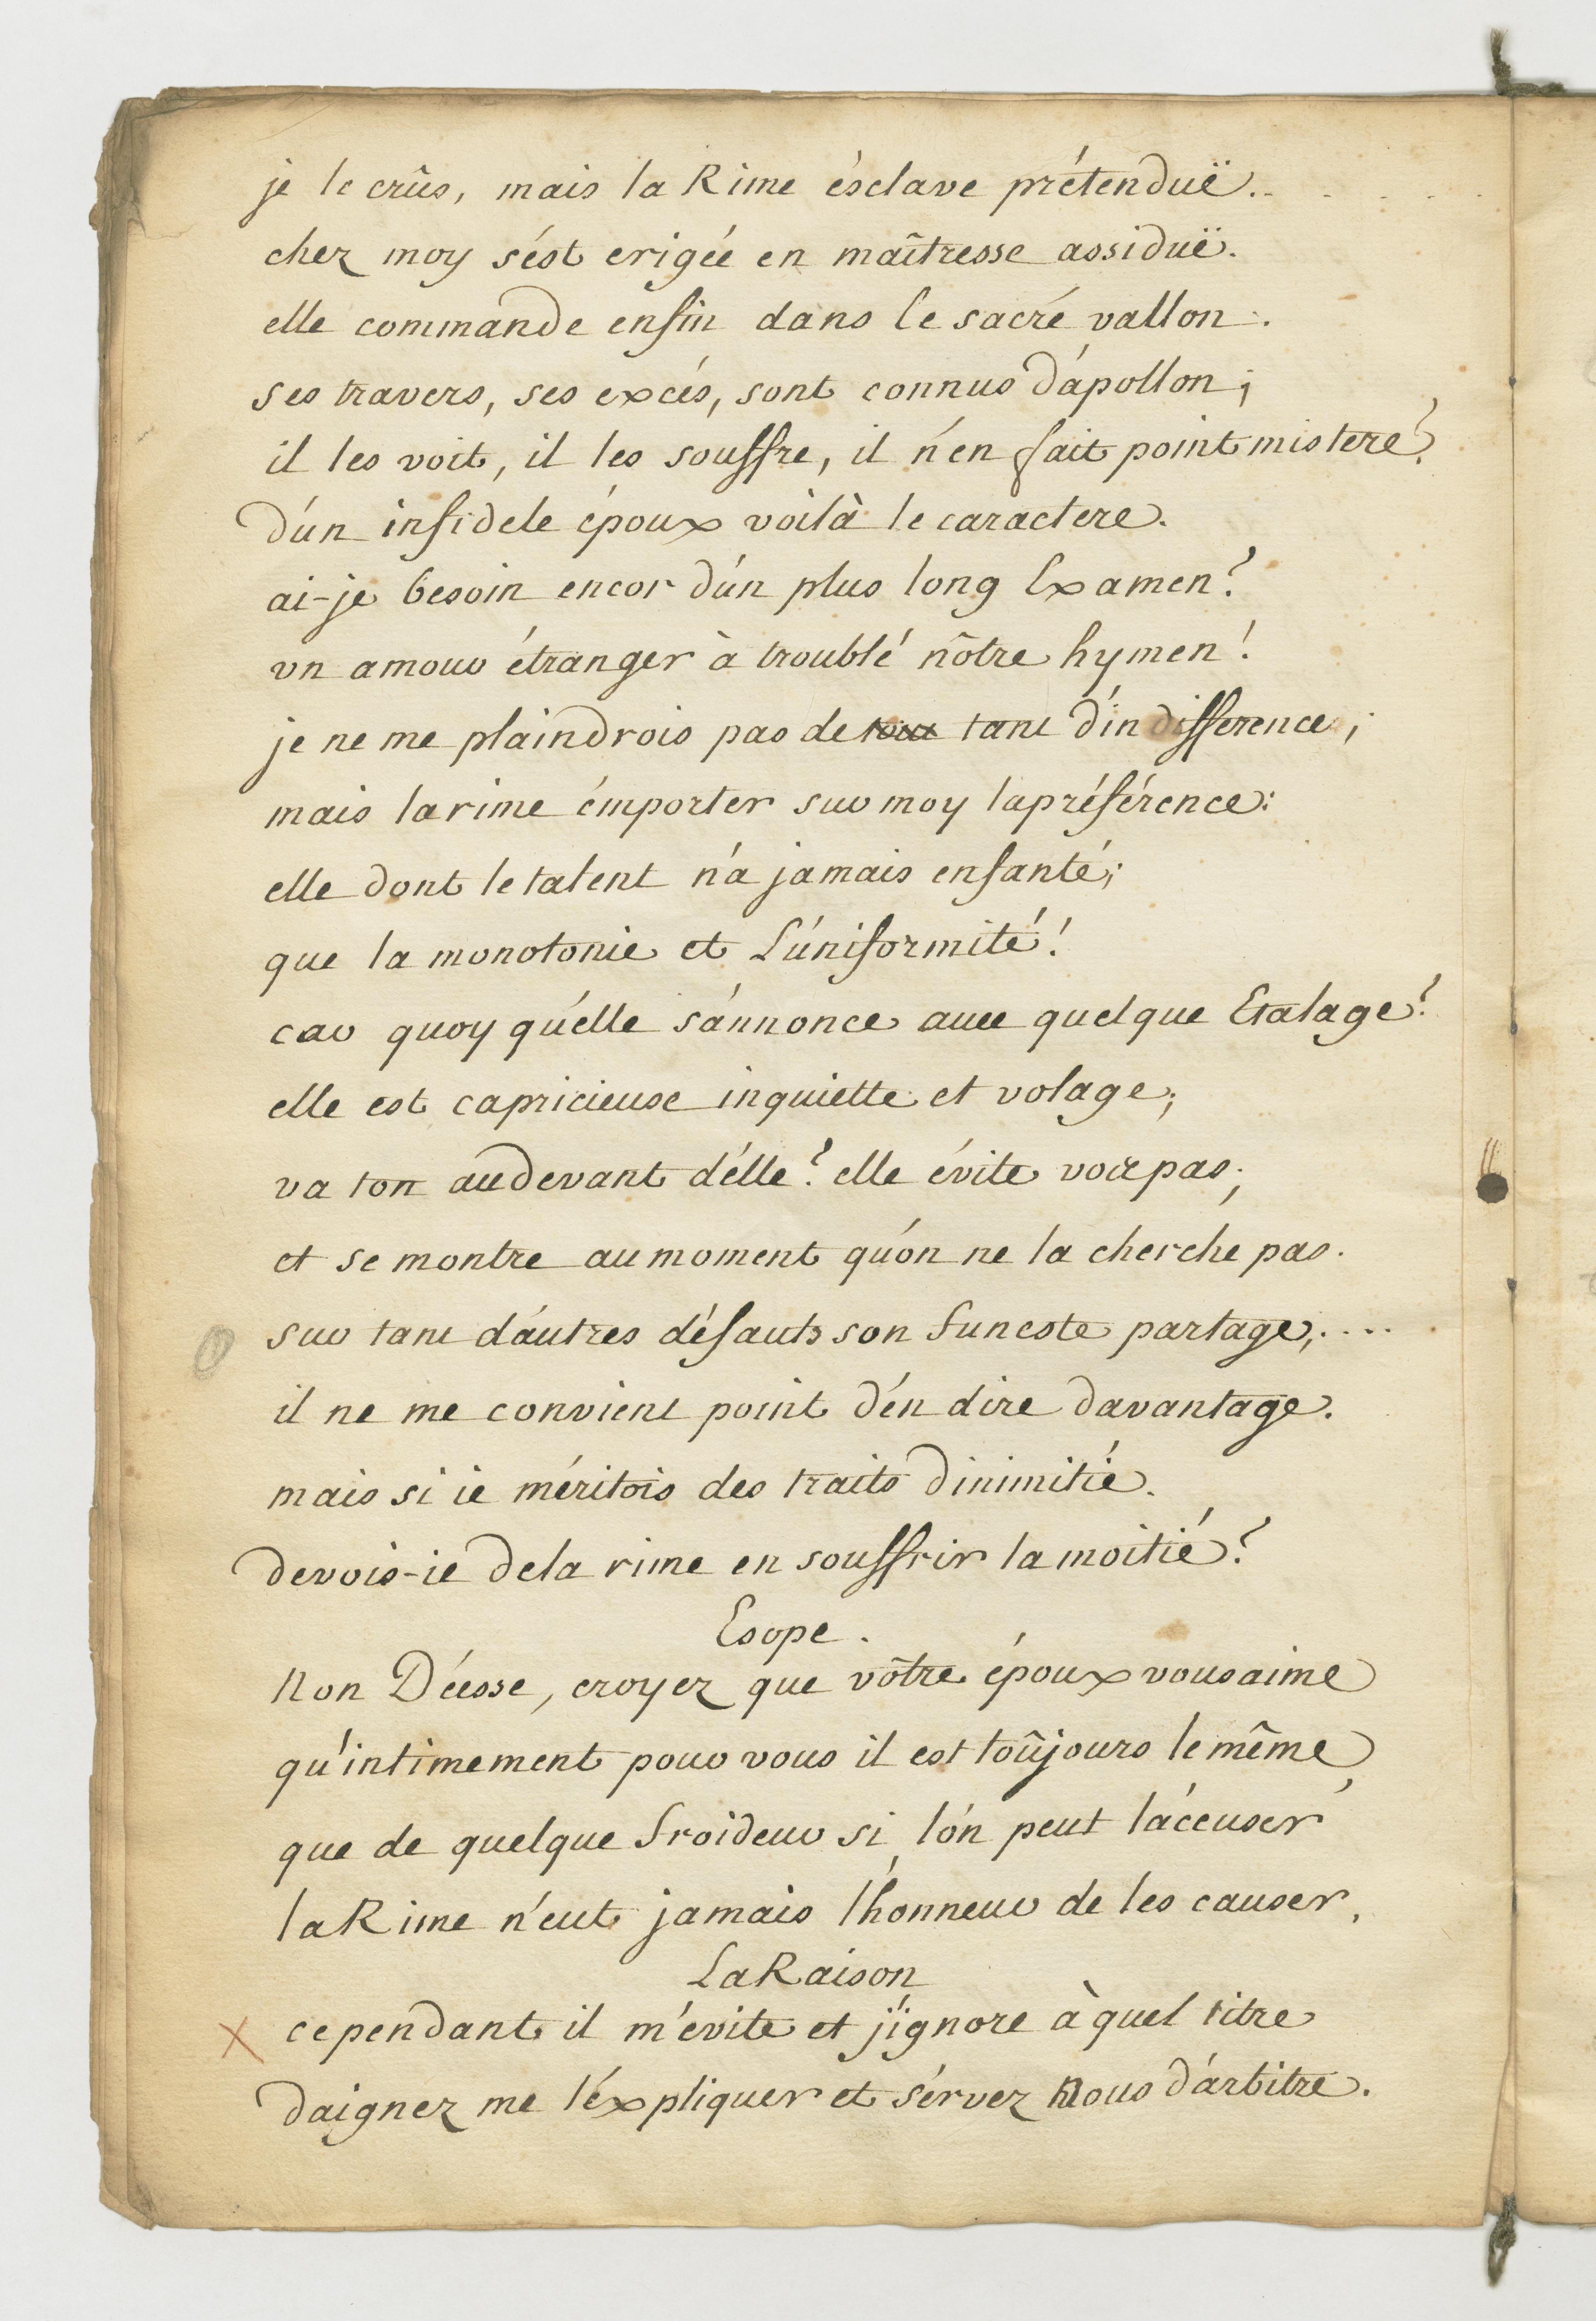 je le crûs, mais la Rime ésclave prétenduë. . . . . .
chez moy s'ést erigée en maîtresse assiduë.
elle commande enfin dans le sacré vallon.
ses travers, ses excés, sont connus d'ápollon;
il les voit, il les souffre, il n'en fait point mistere?
d'ún infidele époux voilà le caractere.
ai-je besoin encor d'ún plus long Examen?
vn amour étranger à troublé nôtre hymen!
je ne me plaindrois pas de tout tant d'indifference;
mais la rime émporter sur moy la préférence:
elle dont le talent n'a jamais enfanté;
que la monotonie et L'úniformité!
car quoy qu'élle s'ánnonce avec quelque Etalage?
elle est capricieuse inquiette et volage;
va ton audevant d'élle? elle évite vos pas;
et se montre au moment qu'ón ne la cherche pas.
sur tant d'áutres défauts son funeste partage;....
il ne me convient point d'én dire davantage.
mais si ie méritois des traits dinimitié.
devois-ie dela rime en souffrir la moitié?
Esope.
Non Déesse, croyez que vôtre époux vous aime
qu'intimement pour vous il est toûjours le même,
que de quelque froideur si l'ón peut l'áccuser
la Rime n'eut jamais l'honneur de les causer,
La Raison
cependant il m'évite et j'ignore à quel titre
daignez me l'éxpliquer et sérvez Nous d'árbitre.